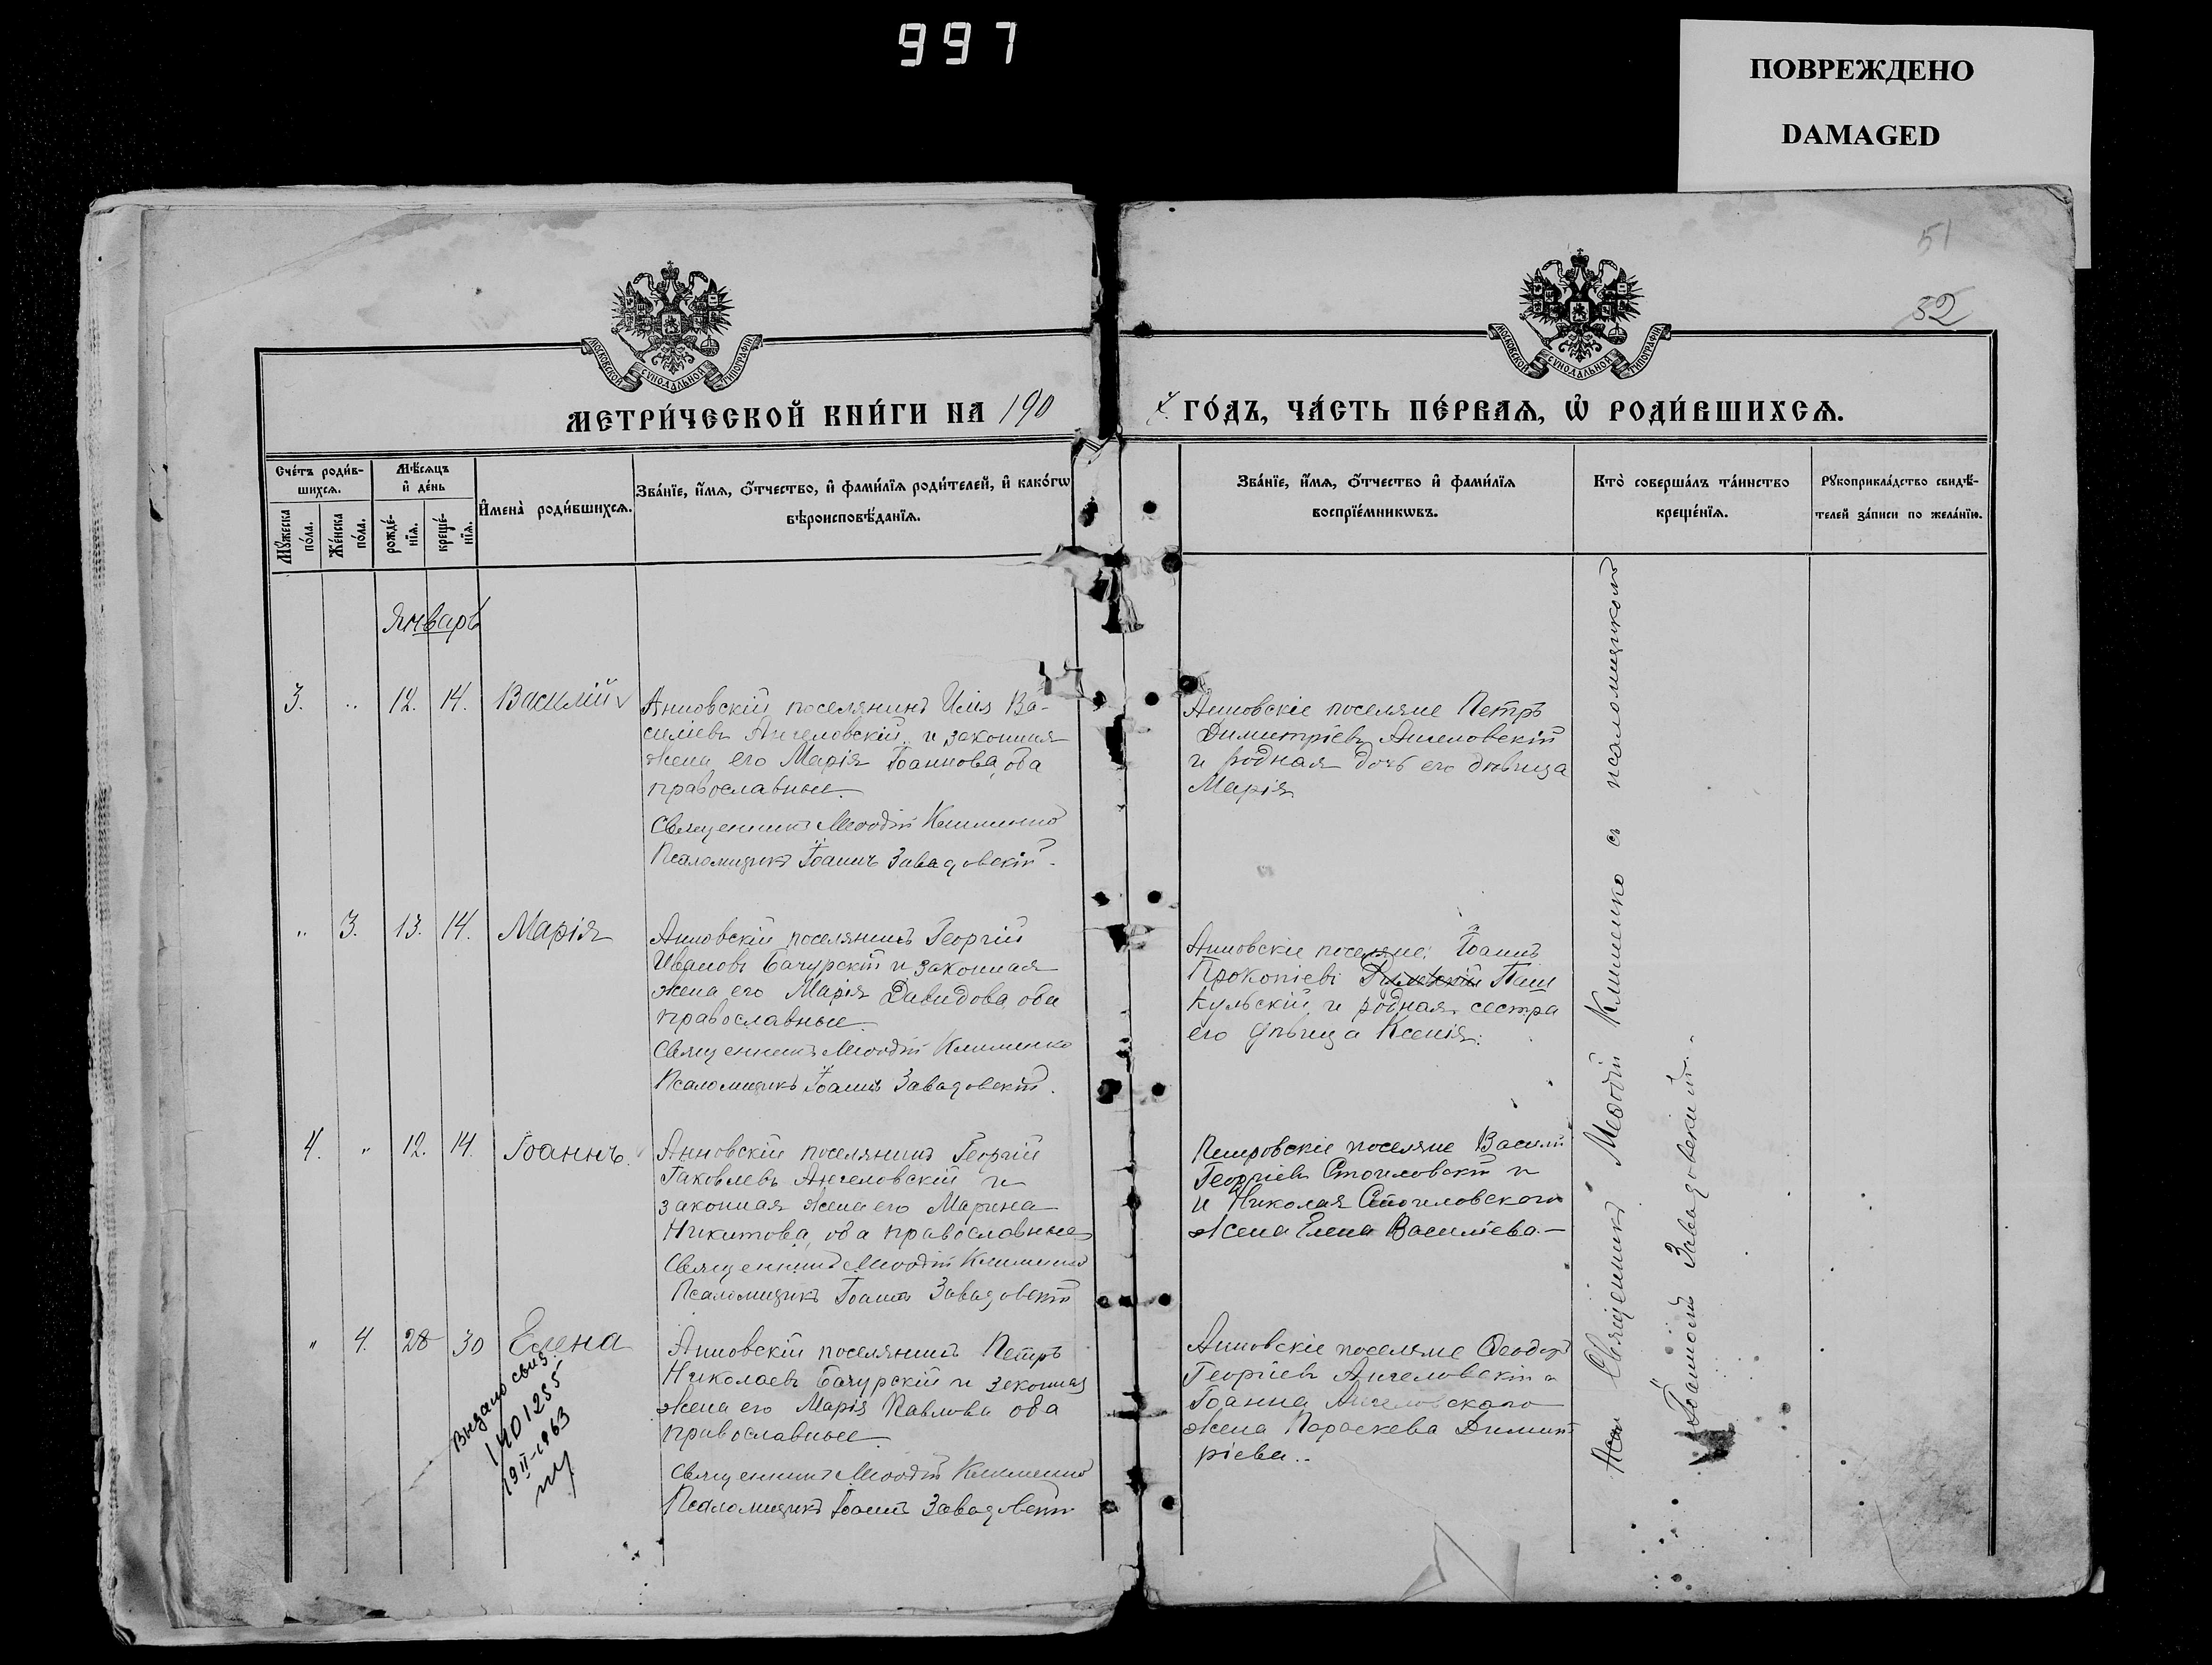 997
ПОВРЕЖДЕНО
DAMAGED
51
52
МОСКОВСКОЙ СѴНОДАЛЬНОЙ ТИПОГРАФІИ
МОСКОВСКОЙ СѴНОДАЛЬНОЙ ТИПОГРАФІИ
МЕТРИ́ЧЕСКОЙ КНИ́ГИ НА 190
ГО́ДЪ, ЧА́СТЬ ПЕ́РВАѦ, Ѡ҆ РОДИ́ВШИХСѦ.
Сче́тъ роди́в-
шихсѧ.
Мꙋ́жеска
по́ла.
Же́нска
по́ла.
Мѣ́сѧцъ
и҆ де́нь
рожде́-
нїѧ.
креще́-
нїѧ.
И҆мена̀ роди́вшихсѧ.
Зва́нїе, и҆́мѧ, ѻ҆́тчество, и҆ фами́лїѧ роди́телей, и҆ како́гѡ
вѣроисповѣ́данїѧ.
Зва́нїе, и҆́мѧ, ѻ҆́тчество и҆ фами́лїѧ
воспрїе́мникѡвъ.
Кто̀ соверша́лъ та́инство
креще́нїѧ.
Рꙋкоприкла́дство свидѣ́-
телей за́писи по жела́нїю.
Январь
3. " 12. 14. Василій
Анновскій поселянинъ Илія Ва-
силіевъ Ангеловскій и законная
жена его Марія Іоаннова, оба
православные.
Священникъ Меѳодій Клименко
Псаломщикъ Іоаннъ Завадовскій.
Анновскіе поселяне Петръ
Димитріевъ Ангеловскій
и родная дочь его дѣвица
Марія
" 3. 13. 14. Марія
Анновскій поселянинъ Георгій
Ивановъ Бачурскій и законная
жена его Марія Давидова, оба
православные.
Священникъ Меѳодій Клименко
Псаломщикъ Іоаннъ Завадовскій.
Анновскіе поселяне: Іоаннъ
Прокопіевъ Паш
кульскій и родная сестра
его дѣвица Ксенія.
4. " 12. 14. Іоаннъ.
Анновскій поселянинъ Георгій
Іаковлевъ Ангеловскій и
законная жена его Марина
Никитова, оба православные
Священникъ Меѳодій Клименко
Псаломщикъ Іоаннъ Завадовскій
Петровскіе поселяне Василій
Георгіевъ Стоиловскій и
и Николая Стоиловскаго
жена Елена Василіева.—
" 4. 28 30 Елена
Анновскій поселянинъ Петръ
Николаевъ Бачурскій и законная
жена его Марія Павлова оба
православные.
Священникъ Меѳодій Клименко
Псаломщикъ Іоаннъ Завадовскій
Анновскіе поселяне Ѳеодоръ
Георгіевъ Ангеловскій и
Іоанна Ангеловскаго
жена Параскева Димит
ріева..
1401255
19 II-1963
Священникъ Меѳодій Клименко съ псаломщикомъ
Іоанномъ Завадовскимъ.